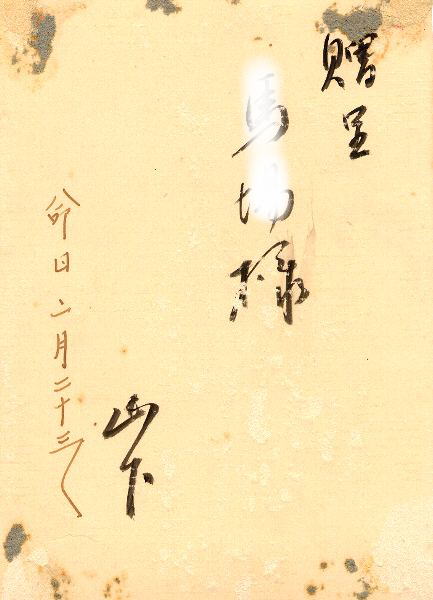 贈呈
馬場様
山下
命日二月二十三